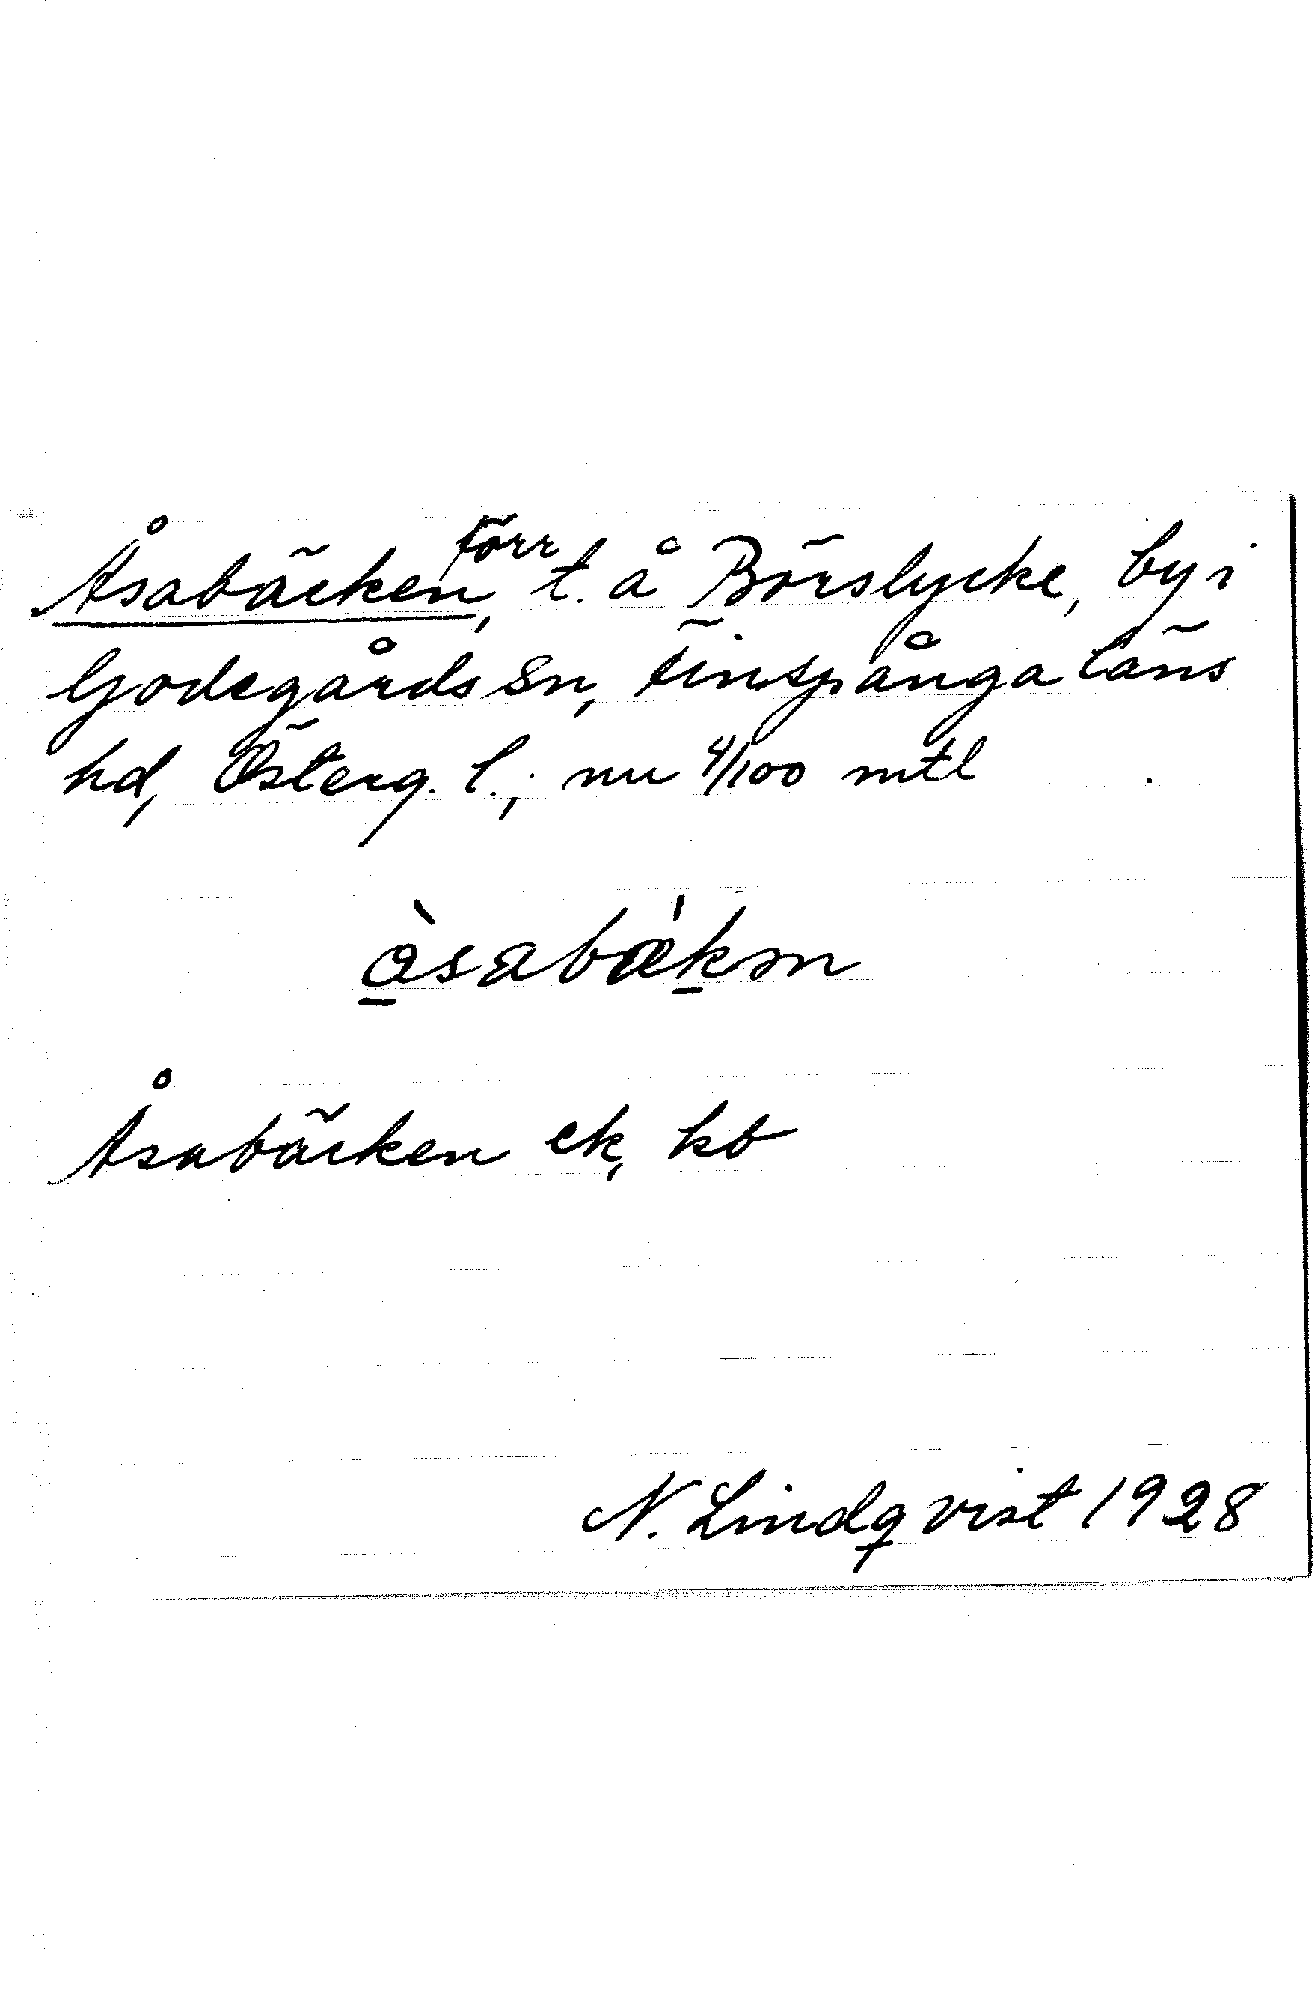 Åsabäcken, förr t. å Börslycke, by i
Godegårds sn, Finspånga läns
hd, Österg. l.; nu 4/100 mtl
åsabækən
Åsabäcken ek, kb
N. Lindqvist 1928